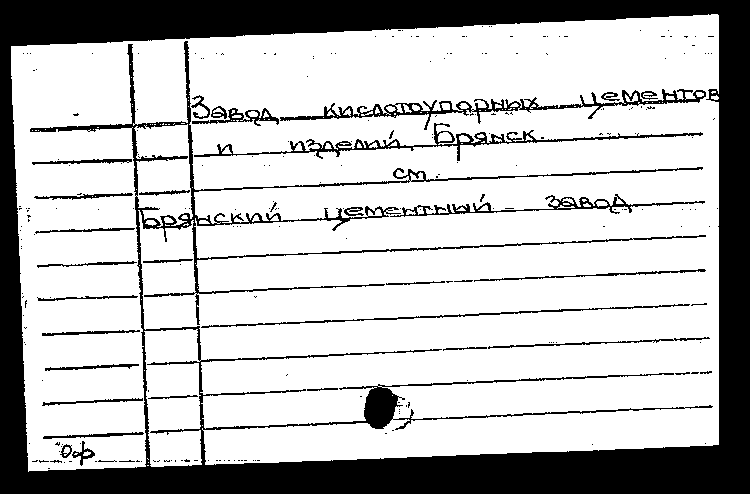 Завод кислотоупорных цементов
и изделий, Брянск.
см.
Брянский цементный завод
Оф